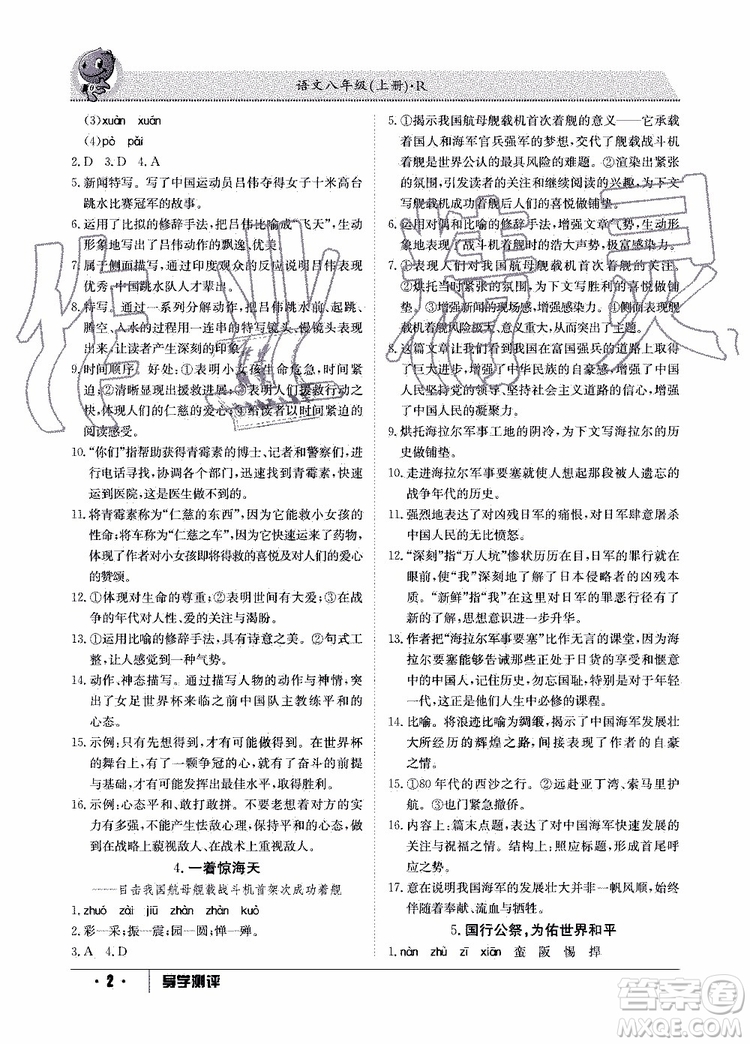 语文八年级(上册)·R
(3)xuàn xuán
(4)pò pǎi
2. D 3. D 4. A
5. 新闻特写。写了中国运动员吕伟夺得女子十米高台
跳水比赛冠军的故事。
6. 运用了比拟的修辞手法,把吕伟比喻成“飞天”,生动
形象地写出了吕伟动作的飘逸、优美。
7. 属于侧面描写。通过印度观众的反应表现了吕伟的
优秀,中国跳水队人才辈出。
8. 特写。通过一系列分解动作,把吕伟跳水前、起跳、
腾空、入水的过程用一连串的特写镜头、慢镜头表现出
来,让读者产生深刻的印象。
9. 时间顺序。好处:①表明小女孩生命危急,时间紧
迫;②清晰显现出援救进展;③体现了人们援救行动之
快,体现了人们的仁慈的爱心;④给读者以时间紧迫的
阅读感受。
10. “你们”指帮助获得青霉素的博士、记者和警察们,进
行电话寻找,协调各个部门,找到青霉素,快速
运到医院,这是医生做不到的。
11. 将青霉素称为“仁慈的东西”,因为它能救小女孩的性
命;将救护车称为“仁慈之车”,因为它快速送来了药物,
体现了作者对小女孩即将得救的喜悦及对人们的爱心
的赞颂。
12. ①体现对生命的尊重;②表明世间有大爱;③战
争的年代对人性、爱的关注与渴盼。
13. ①运用比喻的修辞手法,具有诗意之美。②句式工
整,让人感到一种气势。
14. 动作、神态描写。通过描写人物动作与神情,突
出了女足世界杯来临之前中国队主教练乐观平和的
心态。
15. 示例:只有先赢球,才有可能赢得好看。在世界杯
的舞台上,有了一颗争冠的心,才有可能有争冠的前提
与基础,才可能发挥最佳水平,赢得最后的胜利。
16. 示例:心态平和、敢打敢拼。不要太重视结果,那样
可能产生怯敌心理,影响发挥。要心态平和,做到
在战略上藐视敌人、在战术上重视敌人。
4. 一着惊海天
——目击我国航母舰载战斗机首架次成功着舰
1. zhuó zài jiū zhàn zhàn kuò
2. 彩—采;振—震;园—圆;惮—殚。
3. A 4. D
5. ①揭示我国航母舰载机首次着舰的意义——它承载
着中国人和海军官兵强军的梦想,交代了舰载战斗机
着舰是世界公认的最具风险的难题。②渲染出紧张
的氛围,引起读者的关注和继续阅读的兴趣,为下文
写舰载机成功着舰后人们的喜悦做铺垫。
6. 运用对偶和比喻的修辞手法,增强文章气势,生动
形象地表现了战斗机的浩大声势,富有感染力。
7. ①表现了人们对我国航母舰载机首次着舰的关注。
②烘托当时紧张的氛围,为下文写胜利的喜悦做铺
垫。③增强新闻的现场感,增强感染力。④侧面描写
着舰风险凶险滔天、意义重大,突出了主题。
8. 这篇文章让我们感受到中国在富国强兵的道路上取得
了巨大进步,增强了中华民族的自豪感,增强了中国
人民坚持党的领导、坚持社会主义道路的信心,增强
了中国人民的凝聚力。
9. 烘托海拉尔军事工地的阴冷,为下文写海拉尔的实
况做铺垫。
10. 走进海拉尔军事要塞就仿佛走进一段被人遗忘的
战争年代的历史。
11. 强烈地表现了对凶残日军的痛恨,对日军屠杀
中国人民的罪行的无比愤怒。
12. “深刻”指“万人坑”惨状历历在目,日军的罪行就在
眼前,使“我”深刻地了解了日本侵略者的凶残本质。
“新鲜”指“我”对日本侵略者的罪行有了新
的认识,思想意识进一步升华。
13. 作者把“海拉尔军事要塞”比作无言的课堂,是因为海
拉尔要塞能够告诫那些沉迷于日货的享受和哈日的
中国人,记住历史、勿忘国耻,特别是对未来负有责任
的中国年轻人,这是他们人生中必修的课程。
14. 比喻。将浪迹比喻为绸缎,揭示了中国海军发展壮
大所经历的辉煌之路,表现了作者的自豪
之情。
15. ①80 年代的西沙之行。②远赴亚丁湾、索马里护
航。③也门紧急撤侨。
16. 内容上:篇末点题,表现了对中国海军快速发展的
关注与祝福和美好祝愿。结构上:与开头形成首尾呼
应之势。
17. 意在说明我国海军的发展壮大并非一帆风顺,始终
伴随着奉献、流血与牺牲。
5. 国行公祭,为佑世界和平
1. nàn zhù zī xiān 蛮 阪 惕 捍
·2· 导学测评
作业精灵
答案圈
MXQE.COM